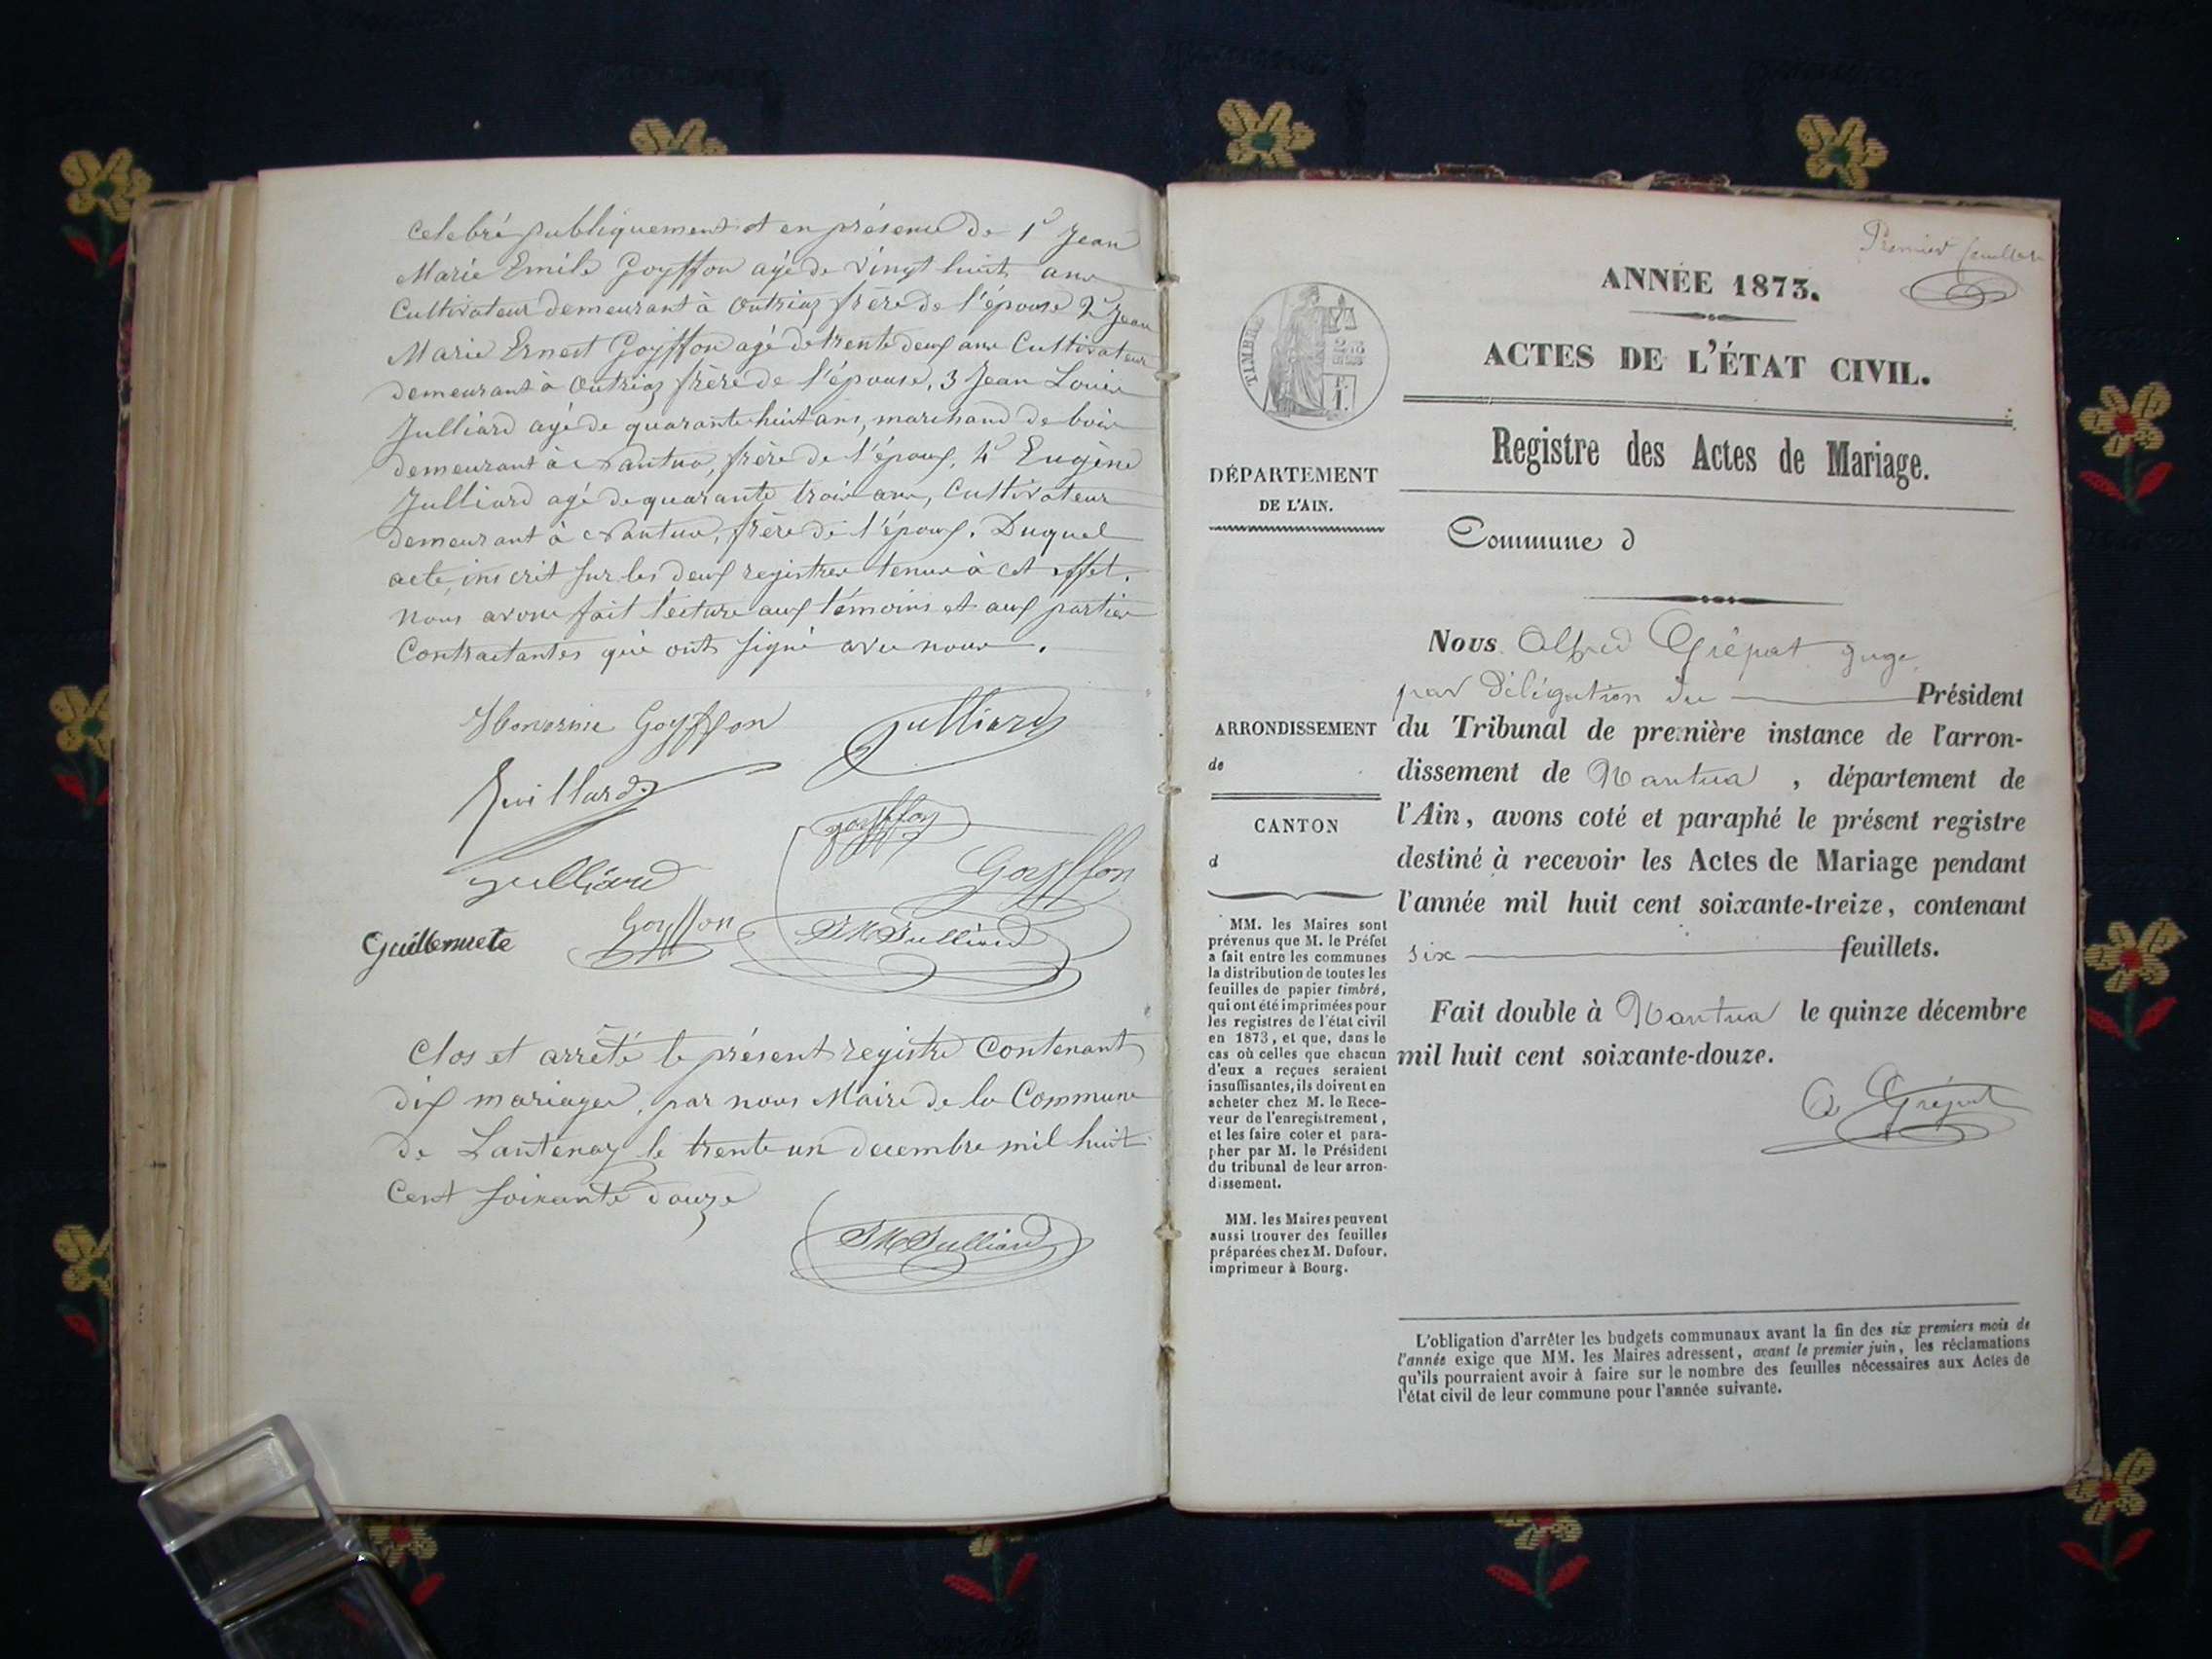 Celebré publiquement et en présence de 1° Jean
Marie Emile Goyffon agé de vingt huit ans
Cultivateur demeurant à Outriaz frère de l'épouse 2° Jean
Marie Ernest Goyffon agé de trente deux ans Cultivateur
demeurant à Outriaz frère de l'épouse, 3 Jean Louis
Julliard agé de quarante huit ans, marchand de bois
demeurant à Nantua, frère de l'époux, 4° Eugène
Julliard agé de quarante trois ans, Cultivateur
demeurant à Nantua, frère de l'époux. Duquel
acte, inscrit sur les deux registres tenus à cet effet.
Nous avons fait lecture aux témoins et aux parties
Contractantes qui ont signé avec nous.
Honorine Goyffon Julliard
Juillard
goyffon
Julliard Goyffon
Guillemete Goyffon JM Julliard
Clos et arrêté le présent registre Contenant
dix mariages, par nous Maire de la Commune
de Lantenay le trente un decembre mil huit
Cent soixante douze
JM Julliard
Premier feuillet
ANNÉE 1873.
ACTES DE L'ÉTAT CIVIL.
TIMBRE
Registre des Actes de Mariage.
DÉPARTEMENT
DE L'AIN.
Commune d
Nous Alfred Grépat juge
par délégation du Président
ARRONDISSEMENT
de
CANTON
d
du Tribunal de première instance de l'arron-
dissement de Nantua, département de
l'Ain, avons coté et paraphé le présent registre
destiné à recevoir les Actes de Mariage pendant
l'année mil huit cent soixante-treize, contenant
six feuillets.
Fait double à Nantua le quinze décembre
mil huit cent soixante-douze.
A Grépat
MM. les Maires sont
prévenus que M. le Préfet
a fait entre les communes
la distribution de toutes les
feuilles de papier timbré,
qui ont été imprimées pour
les registres de l'état civil
en 1873, et que, dans le
cas où celles que chacun
d'eux a reçues seraient
insuffisantes, ils doivent en
acheter chez M. le Rece-
veur de l'enregistrement,
et les faire coter et para-
pher par M. le Président
du tribunal de leur arron-
dissement.
MM. les Maires peuvent
aussi trouver des feuilles
préparées chez M. Dufour,
imprimeur à Bourg.
L'obligation d'arrêter les budgets communaux avant la fin des six premiers mois de
l'année exige que MM. les Maires adressent, avant le premier juin, les réclamations
qu'ils pourraient avoir à faire sur le nombre des feuilles nécessaires aux Actes de
l'état civil de leur commune pour l'année suivante.